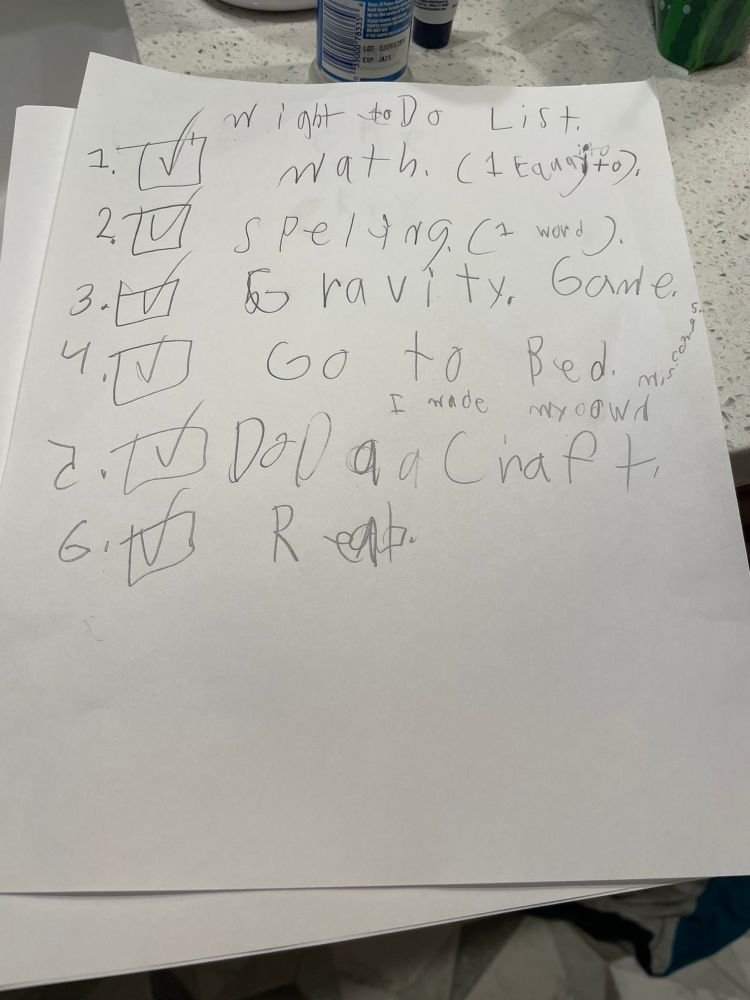 Night to Do List.
1. Math. (1 Equajito).
2. Spelying. (1 word).
3. Gravity. Game.
4. Go to Bed.
I made my oowd mis.comas.
5. DoD a a Craft.
6. Read.
LOT
EXP JA25